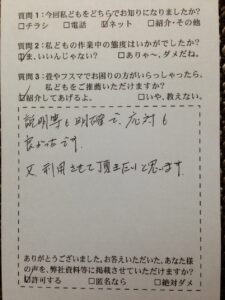 質問1:今回私どもをどちらでお知りになりましたか?
□チラシ □電話 ☑ネット □紹介・その他
質問2:私どもの作業中の態度はいかがでしたか?
☑ま、いいんじゃない? □ありゃ〜、ダメだね。
質問3:畳やフスマでお困りの方がいらっしゃったら、
私どもをご推薦いただけますか?
☑紹介してあげるよ。 □いや、教えない。
説明等も明確で、応対も
良かったです。
又、利用させて頂きたいと思います。
ありがとうございました。お答えいただいた、あなた様
の声を、弊社資料等に掲載させていただけますか?
☑許可する □匿名なら □絶対ダメ